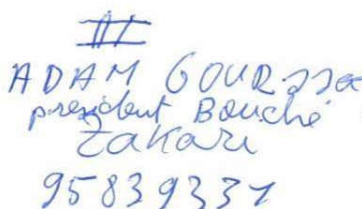 III
ADAM GOURZZA
président Bouché
Zakari
95839331